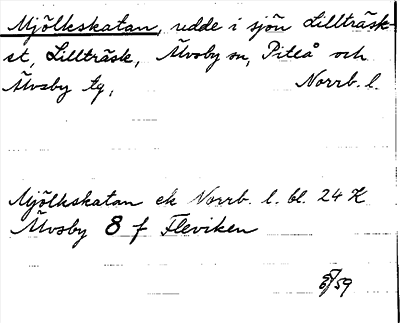 Mjölkskatan, udde i sjön Lillträsk-
et, Lillträsk, Älvsby sn, Piteå och
Älvsby tg, Norrb. l.
Mjölkskatan ek Norrb. l. bl. 24 K
Älvsby 8 f Fleviken
/59